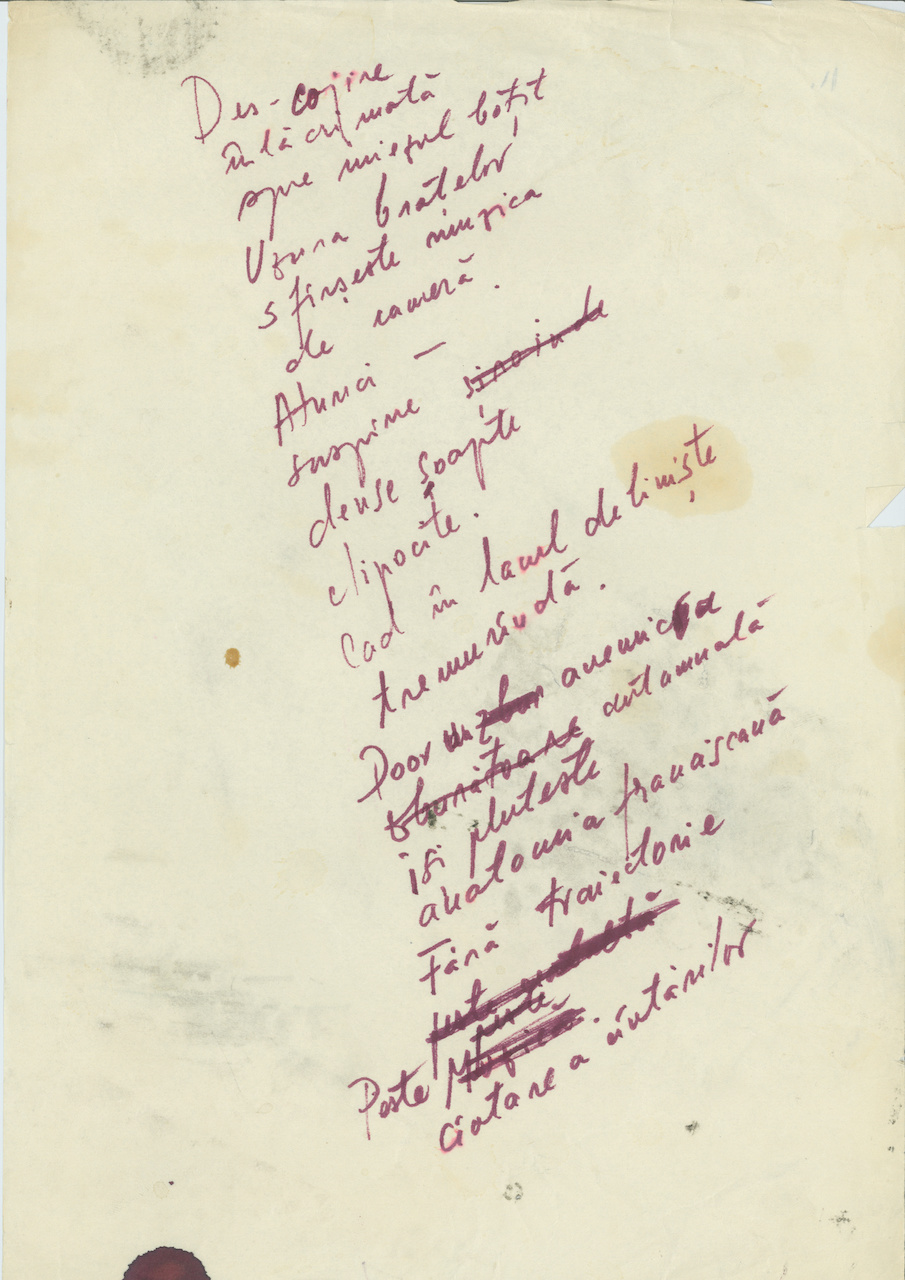 Des-cojire
înlăcrimată
spre miezul boțit
Uzura brațelor
sfîrșește muzica
de cameră.
Atunci —
suspine
dense șoapte
clipocite.
Cad în lacul de liniște
tremurîndă.
Doar anemica
zburătoare autumnală
își plutește
anatomia franciscană
Fără traiectorie
peste
Peste
ciutare a ciutărilor